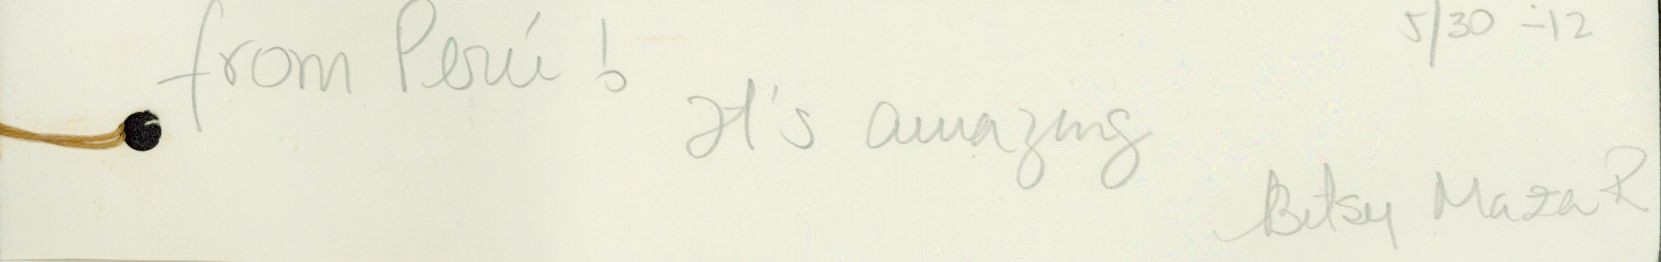 5/30 -12
from Perú!
It's amazing
Betsy Maza R